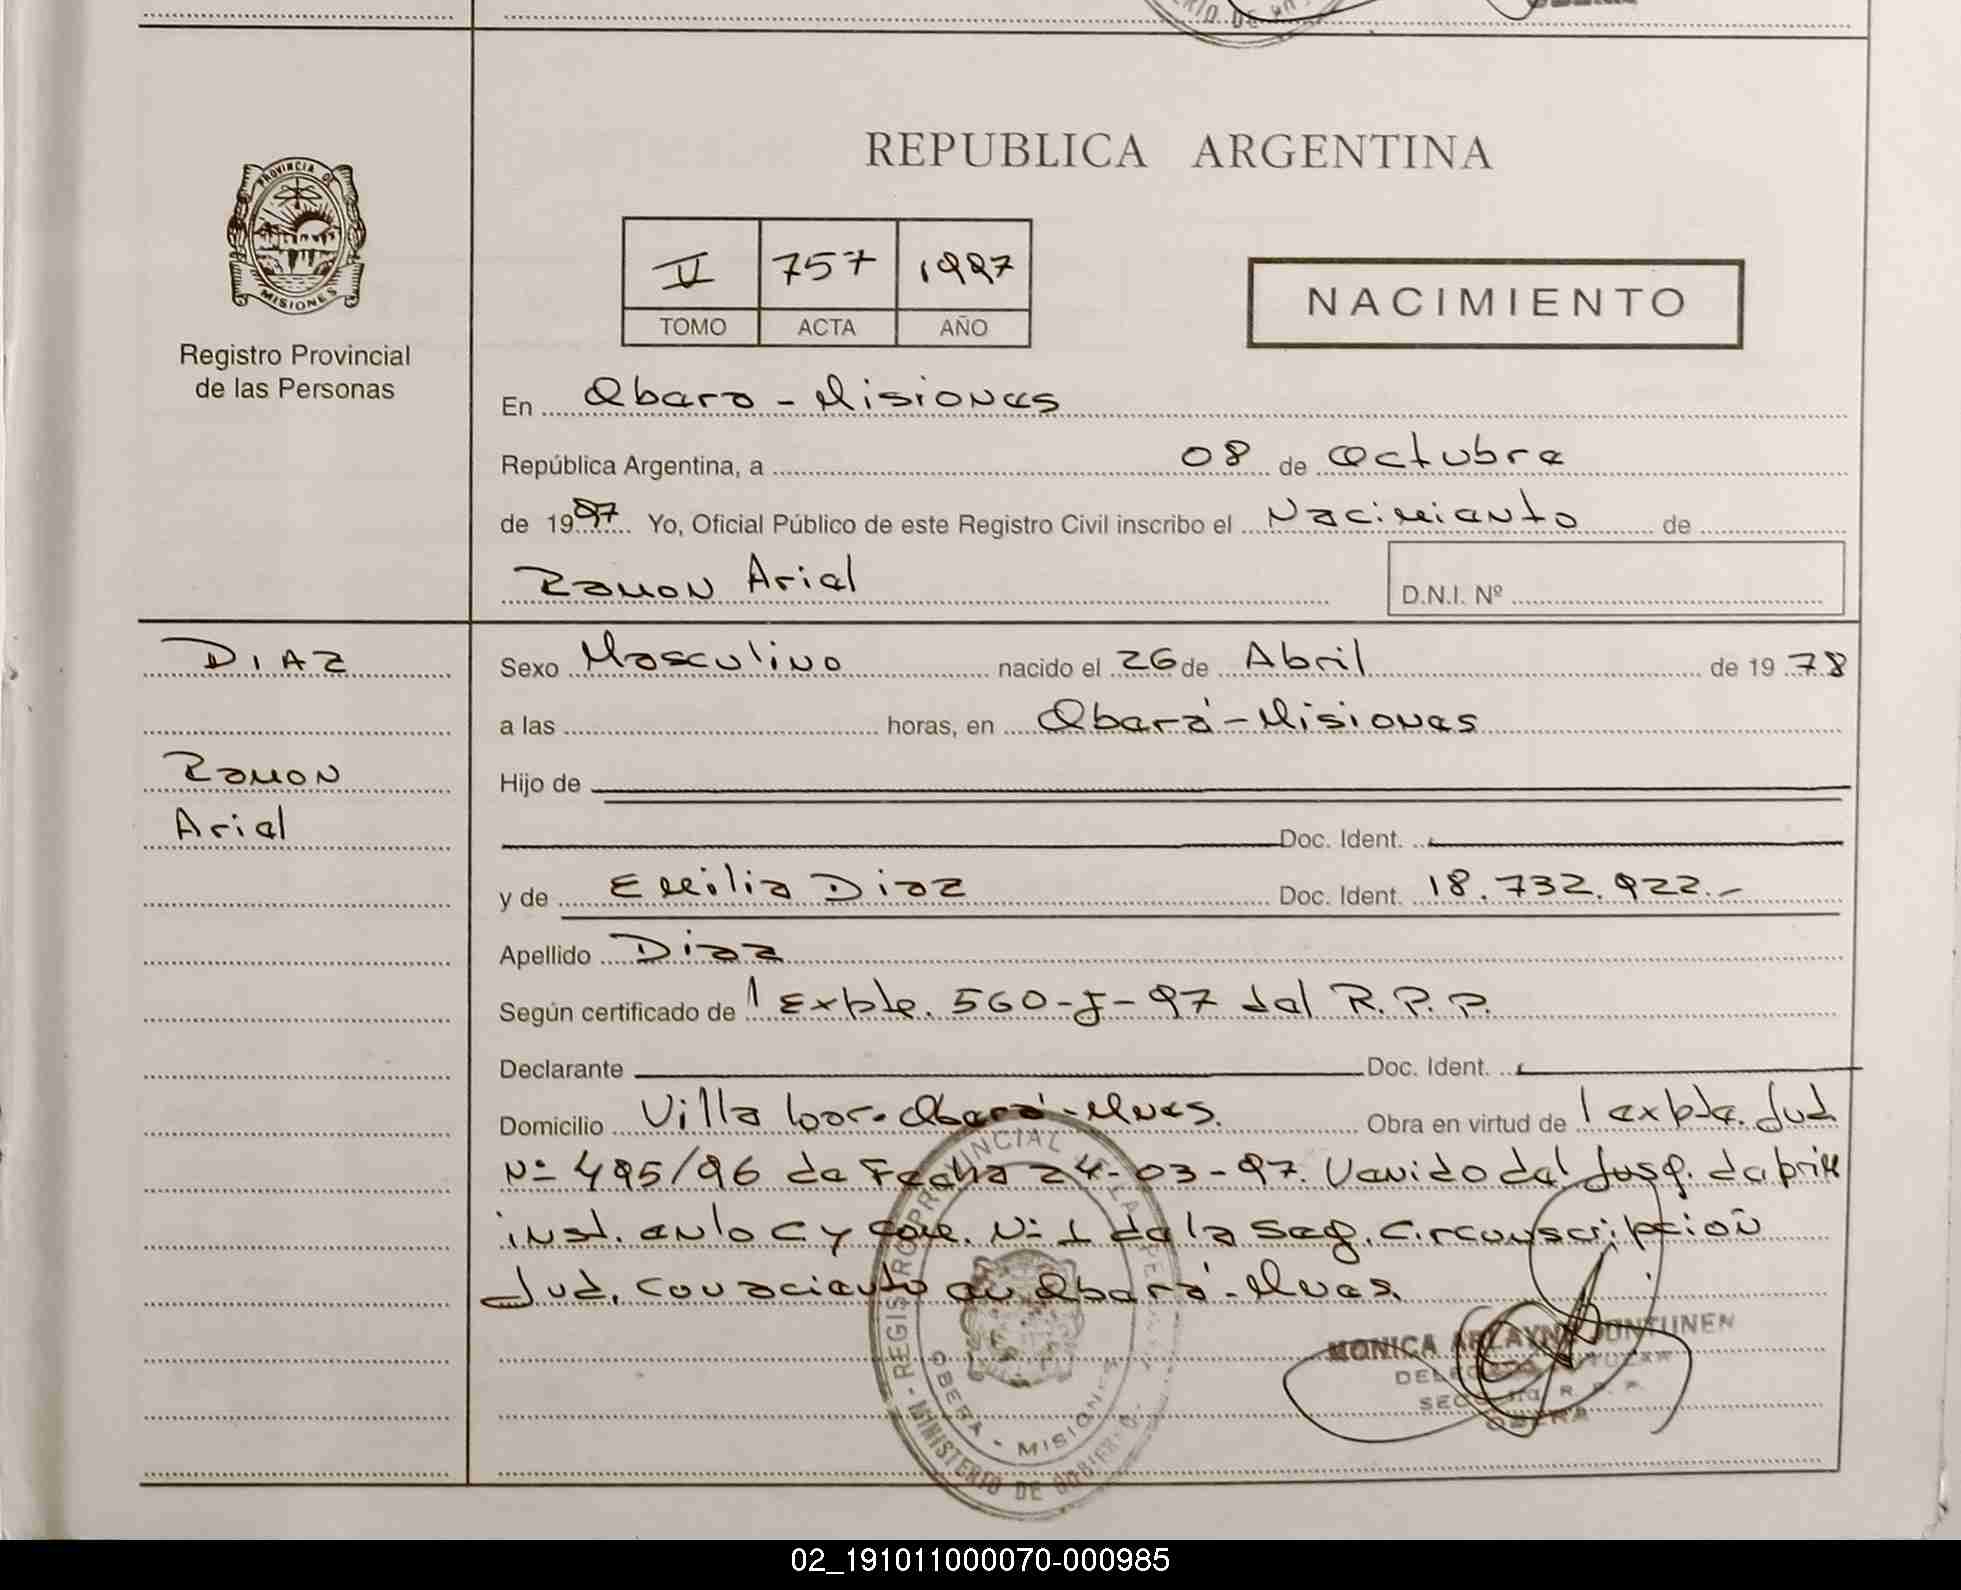 REPUBLICA ARGENTINA
PROVINCIA DE
MISIONES
Registro Provincial
de las Personas
II 757 1997
TOMO ACTA AÑO
NACIMIENTO
En Oberá - Misiones
República Argentina, a 08 de Octubre
de 1997 Yo, Oficial Público de este Registro Civil inscribo el Nacimiento de
Ramon Ariel
D.N.I. Nº
DIAZ
Ramon
Ariel
Sexo Masculino nacido el 26 de Abril de 19 78
a las horas, en Oberá - Misiones
Hijo de
Doc. Ident.
y de Emilia Diaz Doc. Ident. 18.732.922.-
Apellido Diaz
Según certificado de 1 Expte. 560-J-97 del R.P.P.
Declarante Doc. Ident.
Domicilio Villa Oberá - Mnes. Obra en virtud de 1 expte. Jud
Nº 495/96 de Fecha 24-03-97. Venido del Juzg. de prim
inst. en lo C y Com. Nº 1 de la Seg. Circunscripcion
Jud. con aciento en Oberá - Mnes.
REGISTRO PROVINCIAL DE LAS PERSONAS
MINISTERIO DE GOBIERNO
OBERA - MISIONES
MONICA
OBERA
02_191011000070-000985